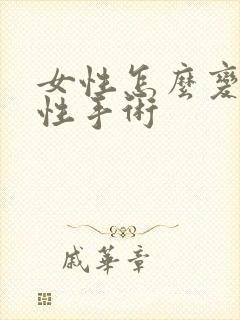 女性怎麼變
性手術
戚華章